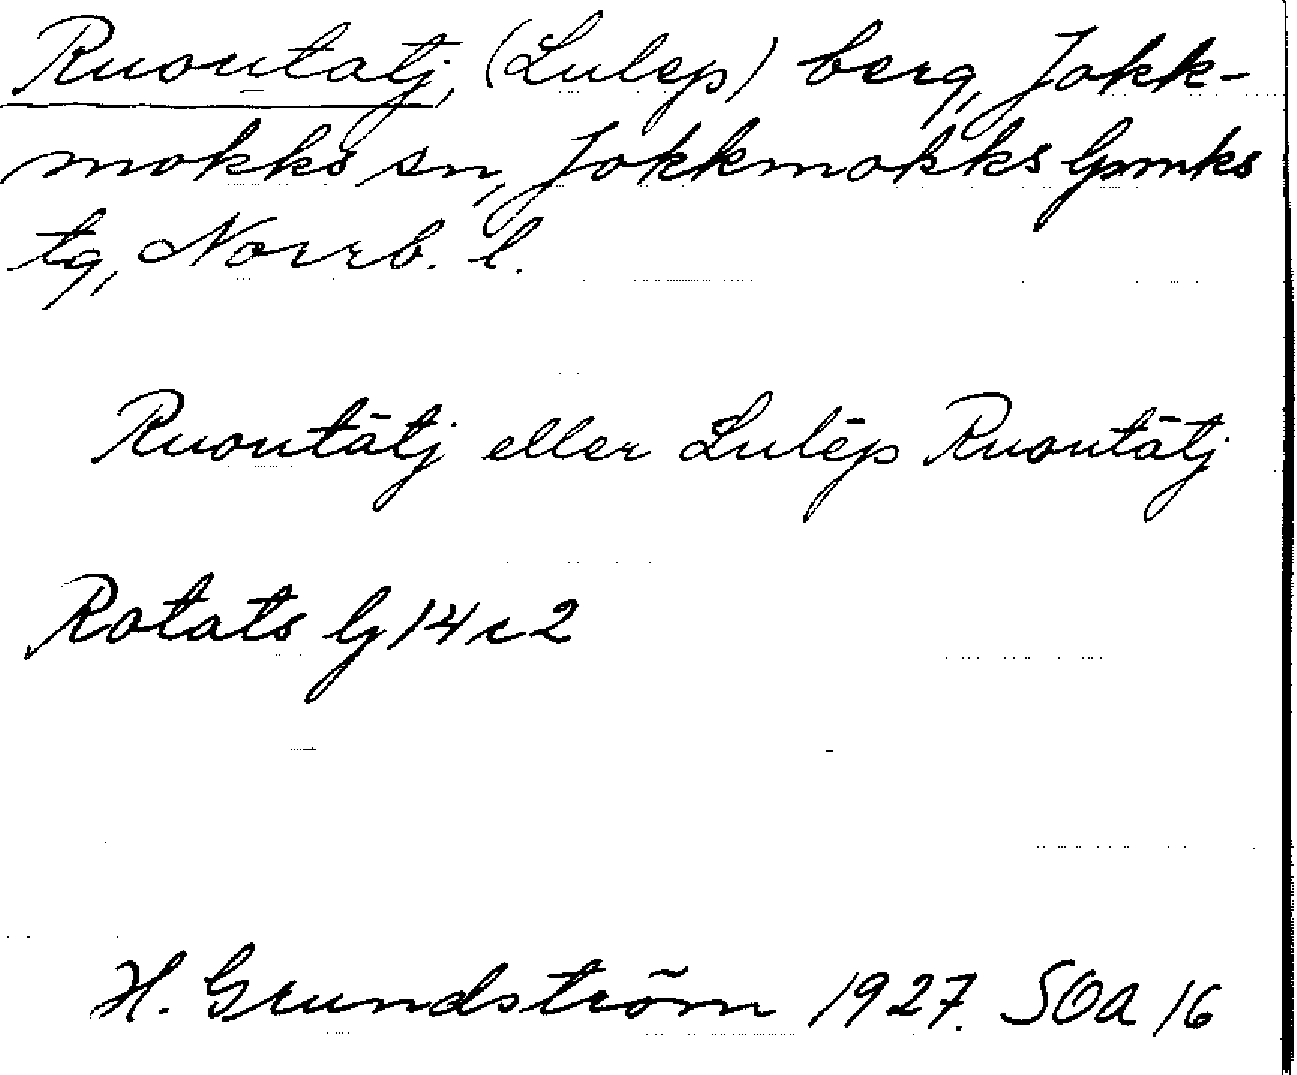 Ruoutatj, (Lulep) berg, Jokk-
mokks sn, Jokkmokks lpmks
tg, Norrb. l.
Ruoutātj eller Lulēp Ruoutātj
Rotats lg 14 c 2
H. Grundström 1927. SOA 16